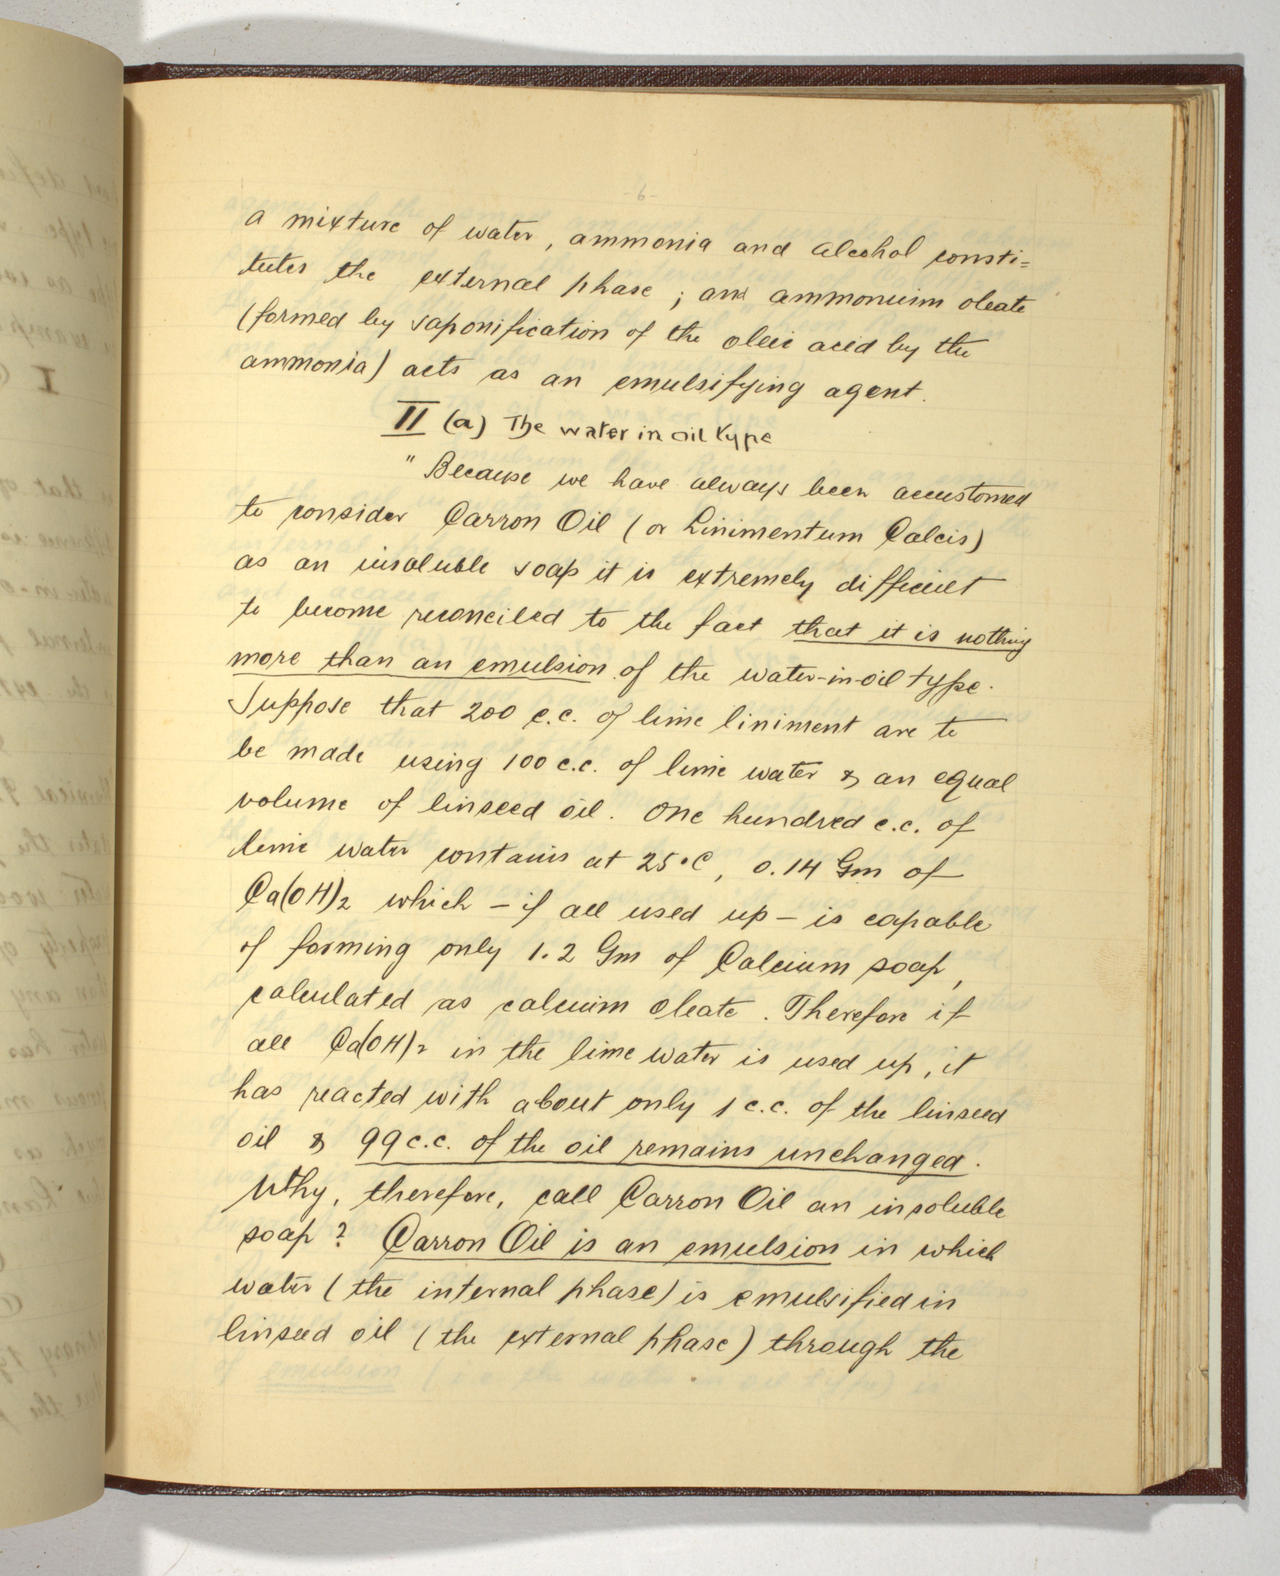 -6-
a mixture of water, ammonia and alcohol consti=
tutes the external phase ; and ammonium oleate
(formed by saponification of the oleic acid by the
ammonia) acts as an emulsifying agent.
II (a) The water in oil type
"Because we have always been accustomed
to consider Carron Oil (or Linimentum Calcis)
as an insoluble soap it is extremely difficult
to become reconciled to the fact that it is nothing
more than an emulsion of the water-in-oil type.
Suppose that 200 c.c. of lime liniment are to
be made using 100 c.c. of lime water & an equal
volume of linseed oil. One hundred c.c. of
lime water contains at 25°C, 0.14 Gm of
Ca(OH)2 which – if all used up – is capable
of forming only 1.2 Gm of Calcium soap,
calculated as calcium oleate. Therefore if
all Ca(OH)2 in the lime water is used up, it
has reacted with about only 1 c.c. of the linseed
oil & 99 c.c. of the oil remains unchanged.
Why, therefore, call Carron Oil an insoluble
soap? Carron Oil is an emulsion in which
water (the internal phase) is emulsified in
linseed oil (the external phase) through the